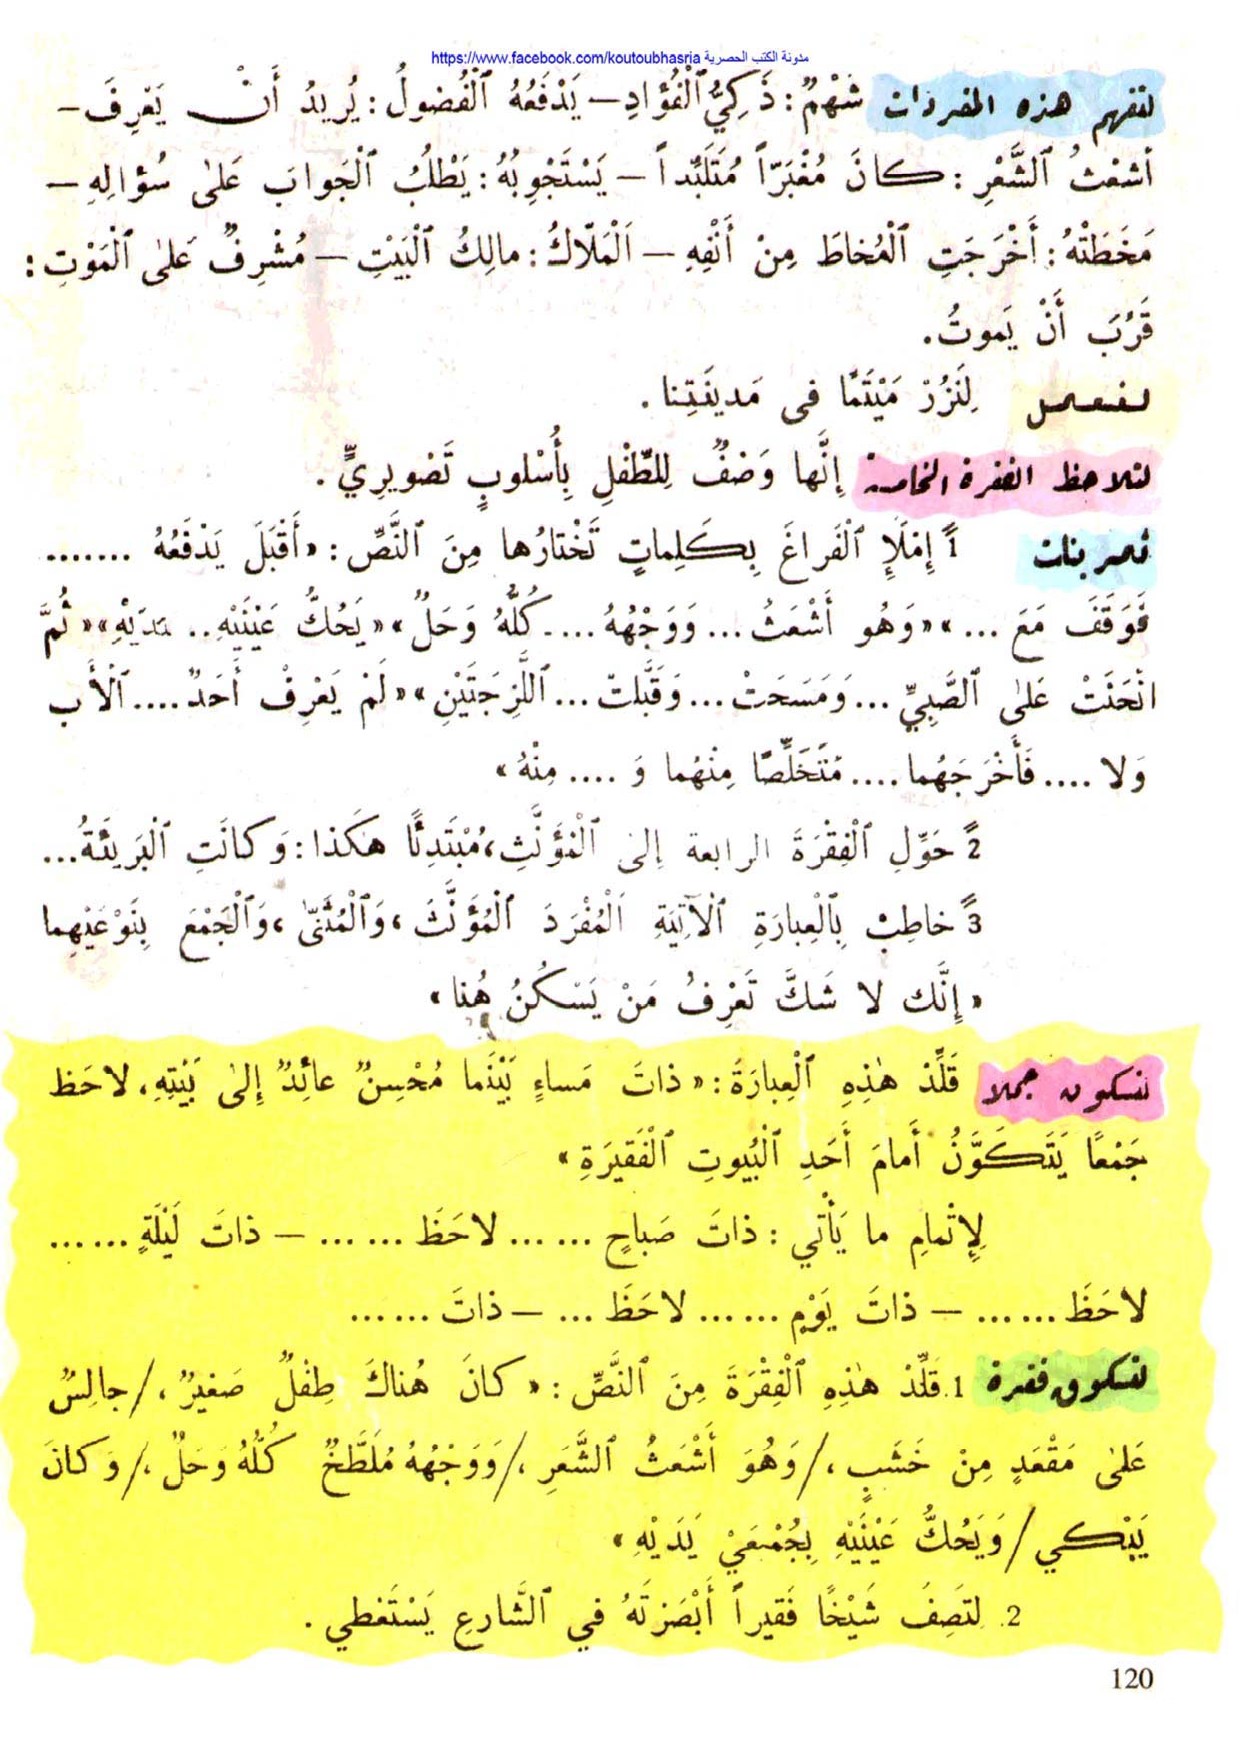 مدونة الكتب الحصرية https://www.facebook.com/koutoubhasria
لنفهم هذه المفردات شَهْمٌ : ذَكِيُّ ٱلْفُؤَادِ — يَدْفَعُهُ ٱلْفُضولُ : يُريدُ أَنْ يَعْرِفَ —
أَشْعَثُ ٱلشَّعْرِ : كانَ مُغْبَرّاً مُتَلَبِّداً — يَسْتَجْوِبُهُ : يَطْلُبُ ٱلْجَوابَ عَلىٰ سُؤالِهِ —
مَخَطَتْهُ : أَخْرَجَتِ ٱلْمُخاطَ مِنْ أَنْفِهِ — اَلْمَلّاكُ : مالِكُ ٱلْبَيْتِ — مُشْرِفٌ عَلىٰ ٱلْمَوْتِ :
قَرُبَ أَنْ يَموتُ .
لنعمل لِنَزُرْ مَيْتَمًا في مَدينَتِنا .
لنلاحظ الفقرة الخامسة إِنَّها وَصْفٌ لِلطِّفْلِ بِأُسْلوبٍ تَصْويرِيٍّ .
تمرينات 1ً إِمْلَإِ ٱلْفَراغَ بِكَلِماتٍ تَخْتارُها مِنَ ٱلنَّصِّ : «أَقْبَلَ يَدْفَعُهُ .......
فَوَقَفَ مَعَ ... » «وَهُو أَشْعَثُ ... وَوَجْهُهُ .... كُلُّهُ وَحَلٌ» «يَحُكُّ عَيْنَيْهِ .. يَدَيْهِ» «ثُمَّ
انْحَنَتْ عَلىٰ ٱلصَّبِيِّ ... وَمَسَحَتْ ... وَقَبَّلَتْ ... اللَّزِجَتَيْنِ» «لَمْ يَعْرِفْ أَحَدٌ .... ٱلْأَب
وَلا .... فَأَخْرَجَهُما .... مُتَخَلِّصًا مِنْهُما وَ .... مِنْهُ»
2ً حَوِّلِ ٱلْفِقْرَةَ الرابعة إِلىٰ ٱلْمُؤَنَّثِ ، مُبْتَدِئًا هٰكَذا : وَكانَتِ ٱلْبَريئَةُ ...
3ً خاطِبْ بِٱلْعِبارَةِ ٱلْآتِيَةِ اَلْمُفْرَدَ ٱلْمُؤَنَّثَ ، وَٱلْمُثَنّىٰ ، وَٱلْجَمْعَ بِنَوْعَيْهِما
«إِنَّك لا شَكَّ تَعْرِفُ مَنْ يَسْكُنُ هُنا»
لنكون جملا قَلِّدْ هٰذِهِ ٱلْعِبارَةَ : «ذاتَ مَساءٍ بَيْنَما مُحْسِنٌ عائِدٌ إِلىٰ بَيْتِهِ ، لاحَظ
جَمْعًا يَتَكَوَّنُ أَمامَ أَحَدِ ٱلْبُيوتِ ٱلْفَقيرَةِ»
لِإِتْمامِ ما يَأْتي : ذاتَ صَباحٍ ...... لاحَظَ ...... — ذاتَ لَيْلَةٍ ......
لاحَظَ ...... — ذاتَ يَوْمٍ ...... لاحَظَ ... — ذاتَ ......
لنكون فقرة 1. قَلِّدْ هٰذِهِ ٱلْفِقْرَةَ مِنَ ٱلنَّصِّ : «كانَ هُناكَ طِفْلٌ صَغيرٌ ،/ جالِسٌ
عَلىٰ مَقْعَدٍ مِنْ خَشَبٍ ،/ وَهُوَ أَشْعَثُ ٱلشَّعَرِ ،/ وَوَجْهُهُ مُلَطَّخٌ كُلُّهُ وَحَلٌ ،/ وَكانَ
يَبْكي / وَيَحُكُّ عَيْنَيْهِ بِجُمْعَيْ يَدَيْهِ»
2. لِتَصِفَ شَيْخًا فَقيراً أَبْصَرْتَهُ في ٱلشّارِعِ يَسْتَعْطي .
120